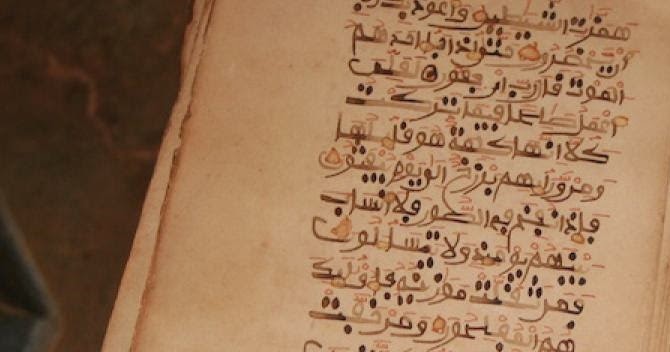 همزت الشيطين وأعوذ بك رب
أن يحضرون حتى إذا جا أحدهم
الموت قال رب ارجعون لعلي
أعمل صلحا فيما تركت
كلا إنها كلمة هو قايلها
ومن ورايهم برزخ إلى يوم يبعثون
فإذا نفخ في الصور فلا أنساب
بينهم يوميذ ولا يتسالون
فمن ثقلت موزينه فأوليك
هم المفلحون ومن خفت